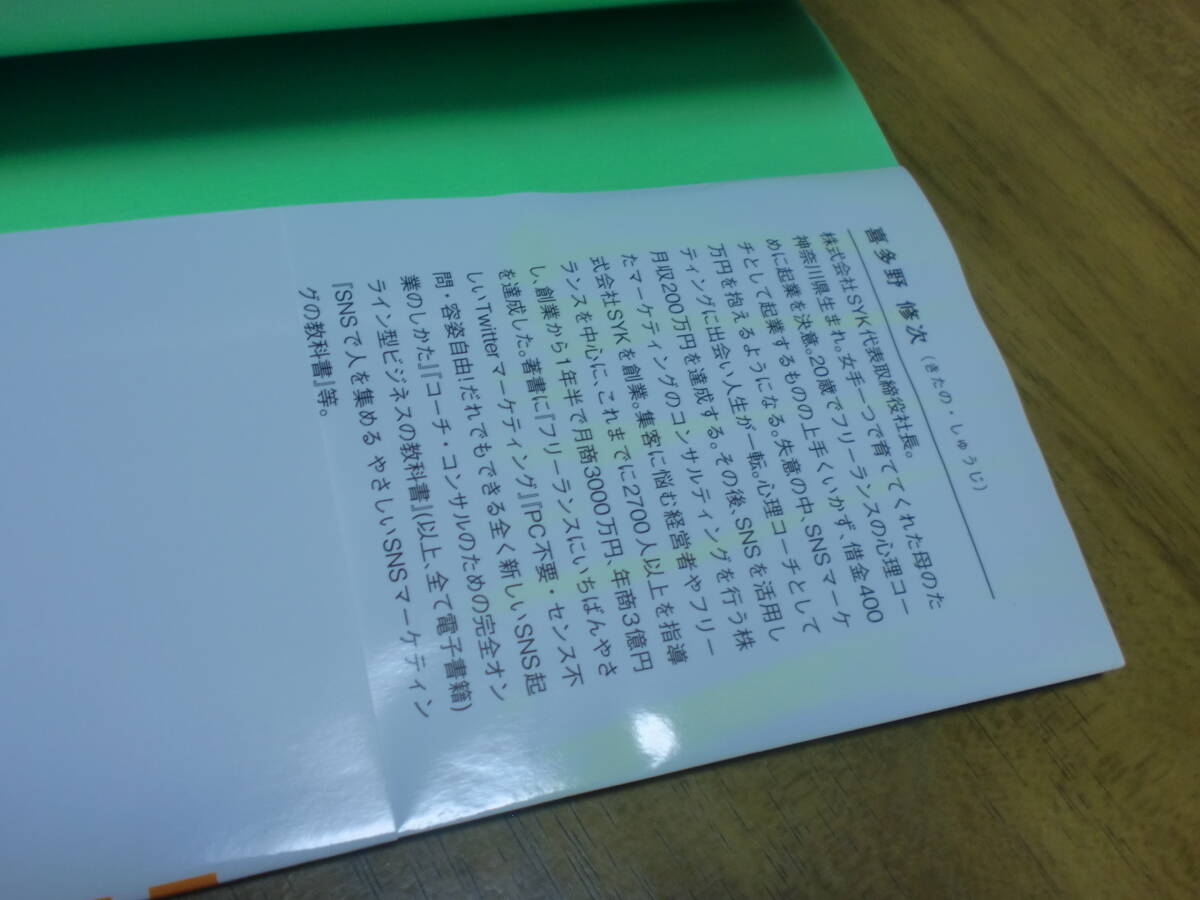 喜多野 修次（きたの・しゅうじ）
株式会社SYK代表取締役社長。
神奈川県生まれ。女手一つで育ててくれた母のた
めに起業を決意。20歳でフリーランスの心理コー
チとして起業するものの上手くいかず、借金400
万円を抱えるようになる。失意の中、SNSマーケ
ティングに出会い人生が一転。心理コーチとして
月収200万円を達成する。その後、SNSを活用し
たマーケティングのコンサルティングを行う株
式会社SYKを創業。集客に悩む経営者やフリー
ランスを中心に、これまでに2700人以上を指導
し、創業から1年半で月商3000万円、年商3億円
を達成した。著書に『フリーランスにいちばんやさ
しいTwitterマーケティング』『PC不要・センス不
問・容姿自由！だれでもできる全く新しいSNS起
業のしかた』『コーチ・コンサルのための完全オン
ライン型ビジネスの教科書』（以上、全て電子書籍）
『SNSで人を集める やさしいSNSマーケティン
グの教科書』等。